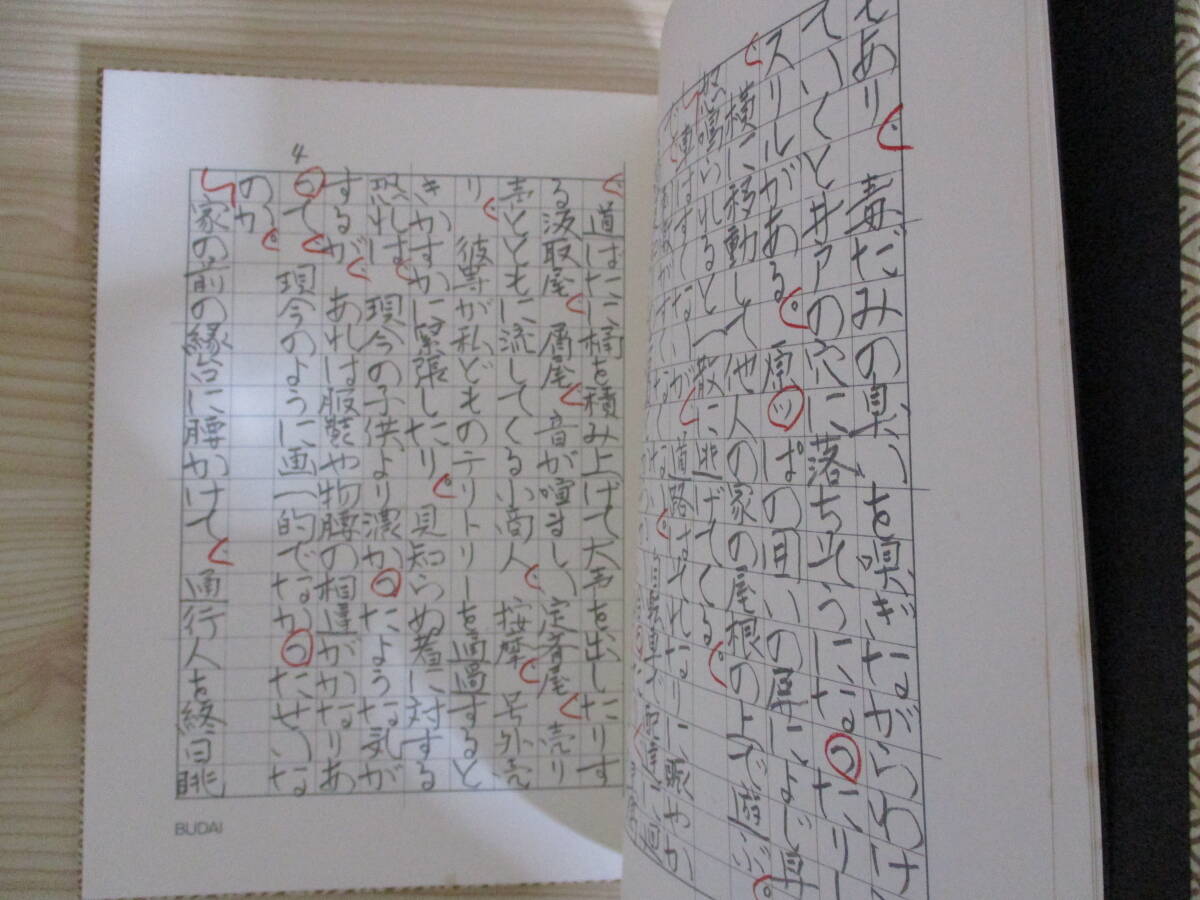 であり、毒だみの臭いを嗅ぎながら
ていくと井戸の穴に落ちそうになったり
スリルがある。原っぱの囲いの
横に移動して他人の家の屋根の上で遊ぶ。
怒鳴られると一散に逃げてくる。
道路はそれなりに賑やか
4
、道ばたに桶を積み上げて大声を出したりす
る汲取屋、屑屋、音が喧ましい定斎屋、売り
声とともに流してくる小商人、按摩、号外売
り、彼等が私どものテリトリーを通過すると
きかすかに緊張したり、見知らぬ者に対する
恐れは、現今の子供より濃かったような気が
するが、あれは服装や物腰の相違がかなりあ
って、現今のように画一的でなかったせいな
のか。
家の前の縁台に腰かけて、通行人を終日眺
BUDAI